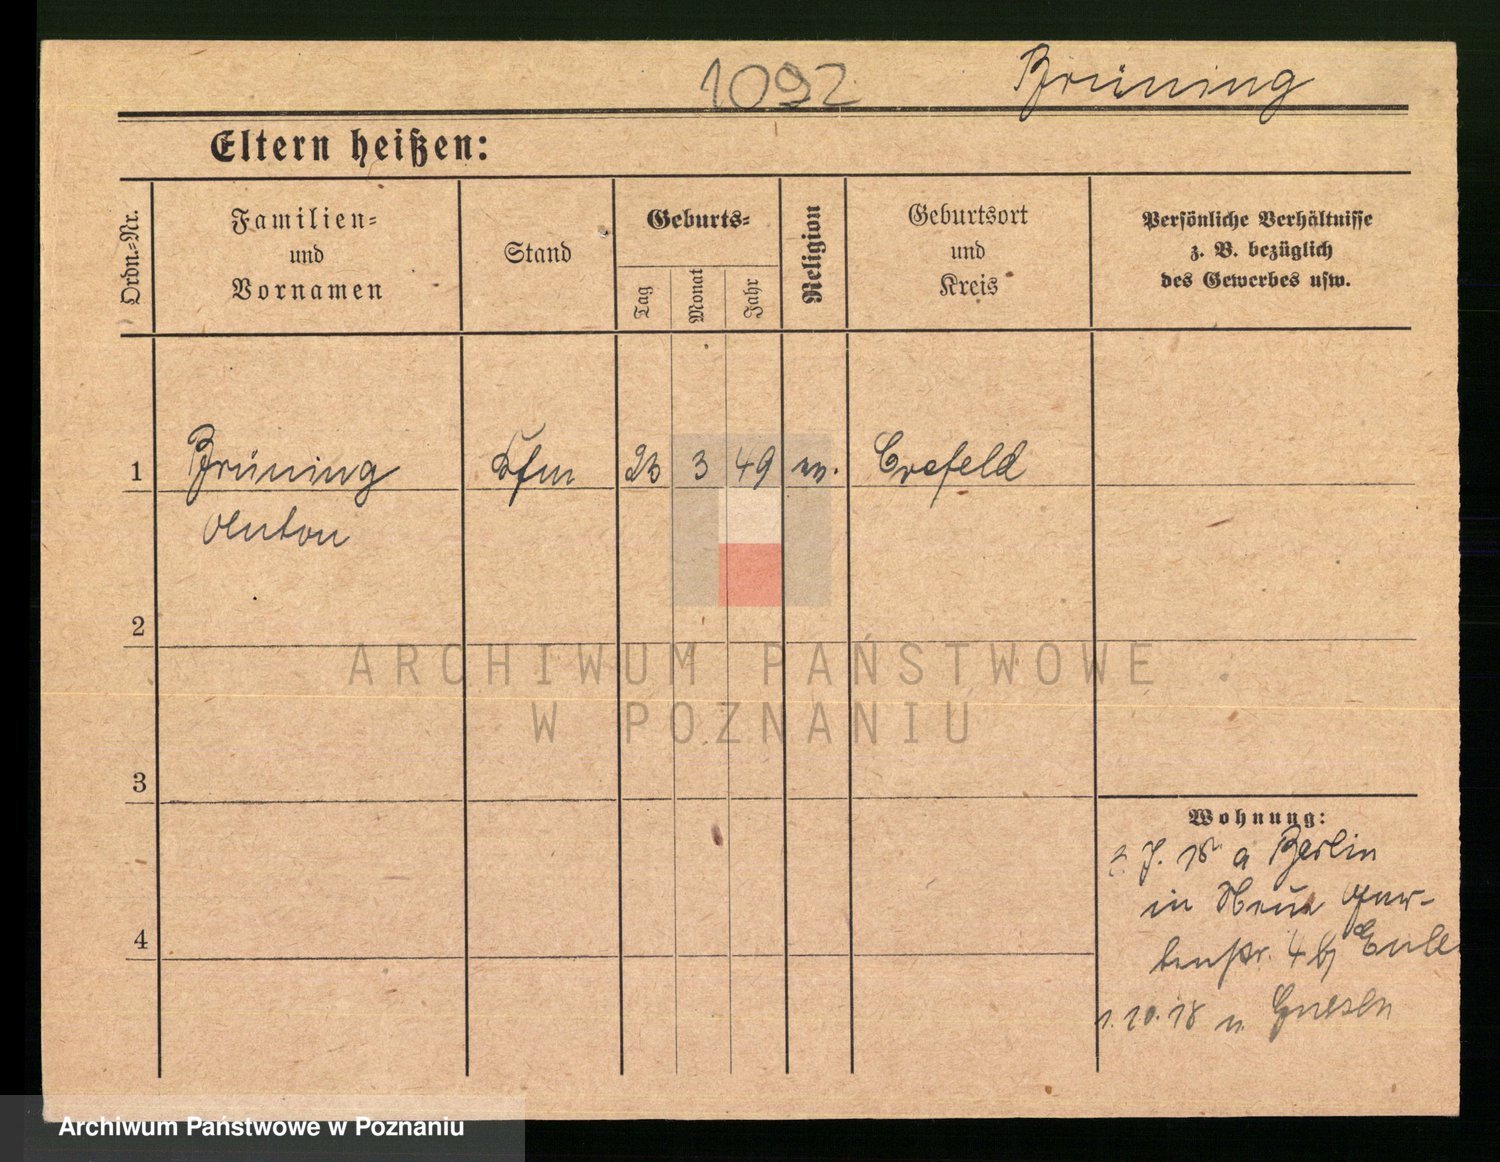 1092 Brüning
Eltern heißen:
Ordn.-Nr.
Familien-
und
Vornamen
Stand
Geburts-
Tag
Monat
Jahr
Religion
Geburtsort
und
Kreis
Persönliche Verhältnisse
z. B. bezüglich
des Gewerbes usw.
1 Brüning Kfm 23 3 49 Crefeld
Anton
2
3
4
Wohnung:
a Berlin
in Neue Gar-
tenstr. 4 b/ Eule
1.10.18 n Gnesen
ARCHIWUM PAŃSTWOWE
W POZNANIU
Archiwum Państwowe w Poznaniu